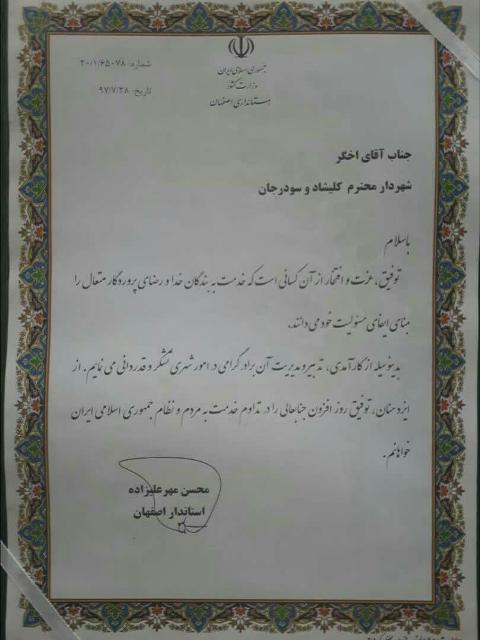 جمهوری اسلامی ایران
وزارت کشور
استانداری اصفهان
شماره: ۲۰/۱/۶۵۰۷۸
تاریخ: ۹۷/۷/۲۸
جناب آقای اخگر
شهردار محترم کلیشاد و سودرجان
باسلام
توفیق، عزت و افتخار از آن کسانی است که خدمت به بندگان خدا و رضای پروردگار متعال را
مبنای ایفای مسئولیت خود می دانند.
بدینوسیله از کارآمدی، تدبیر و مدیریت آن برادر گرامی در امور شهری تشکر و قدردانی می نمایم. از
ایزد منان، توفیق روز افزون جنابعالی را در تداوم خدمت به مردم و نظام جمهوری اسلامی ایران
خواهانم.
محسن مهرعلیزاده
استاندار اصفهان